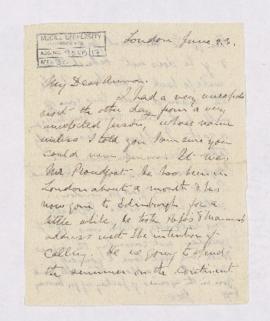 McGILL UNIVERSITY
London June 23.
My Dear
I had a very unexpected
visit the other day from a very
unexpected person, whose name
unless I told you I am sure you
could never It was
Mr Proudfoot. He has been in
London about a month & has
now gone to Edinburgh for a
little while, he took Papa's & Mamma's
address with the intention of
calling. He is going to spend
the summer on the Continent